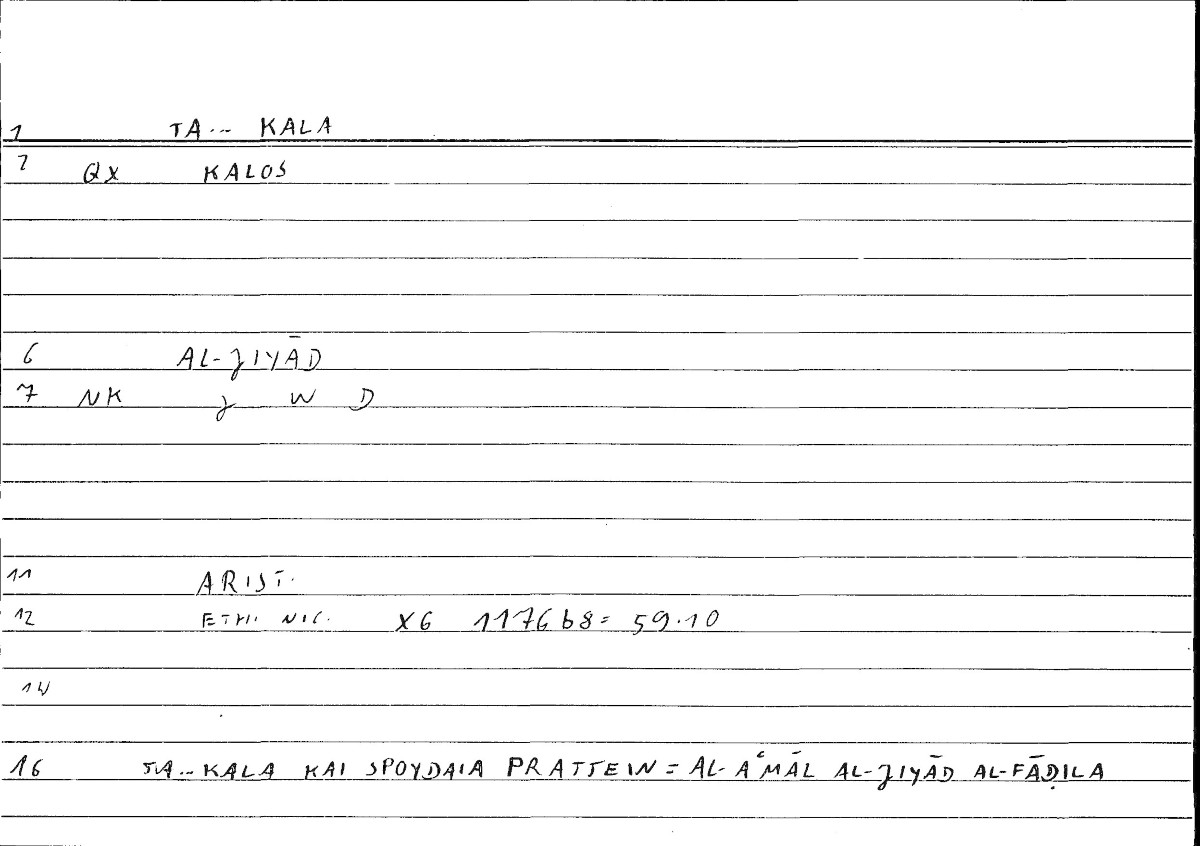 1 TA... KALA
2 QX KALOS
6 AL-ǧIYĀD
7 NK ǧ W D
11 ARIST.
12 ETH. NIC. X6 1176b8= 59.10
14
16 TA...KALA KAI SPOYDAIA PRATTEIN = AL-AʿMĀL AL-ǧIYĀD AL-FĀḌILA